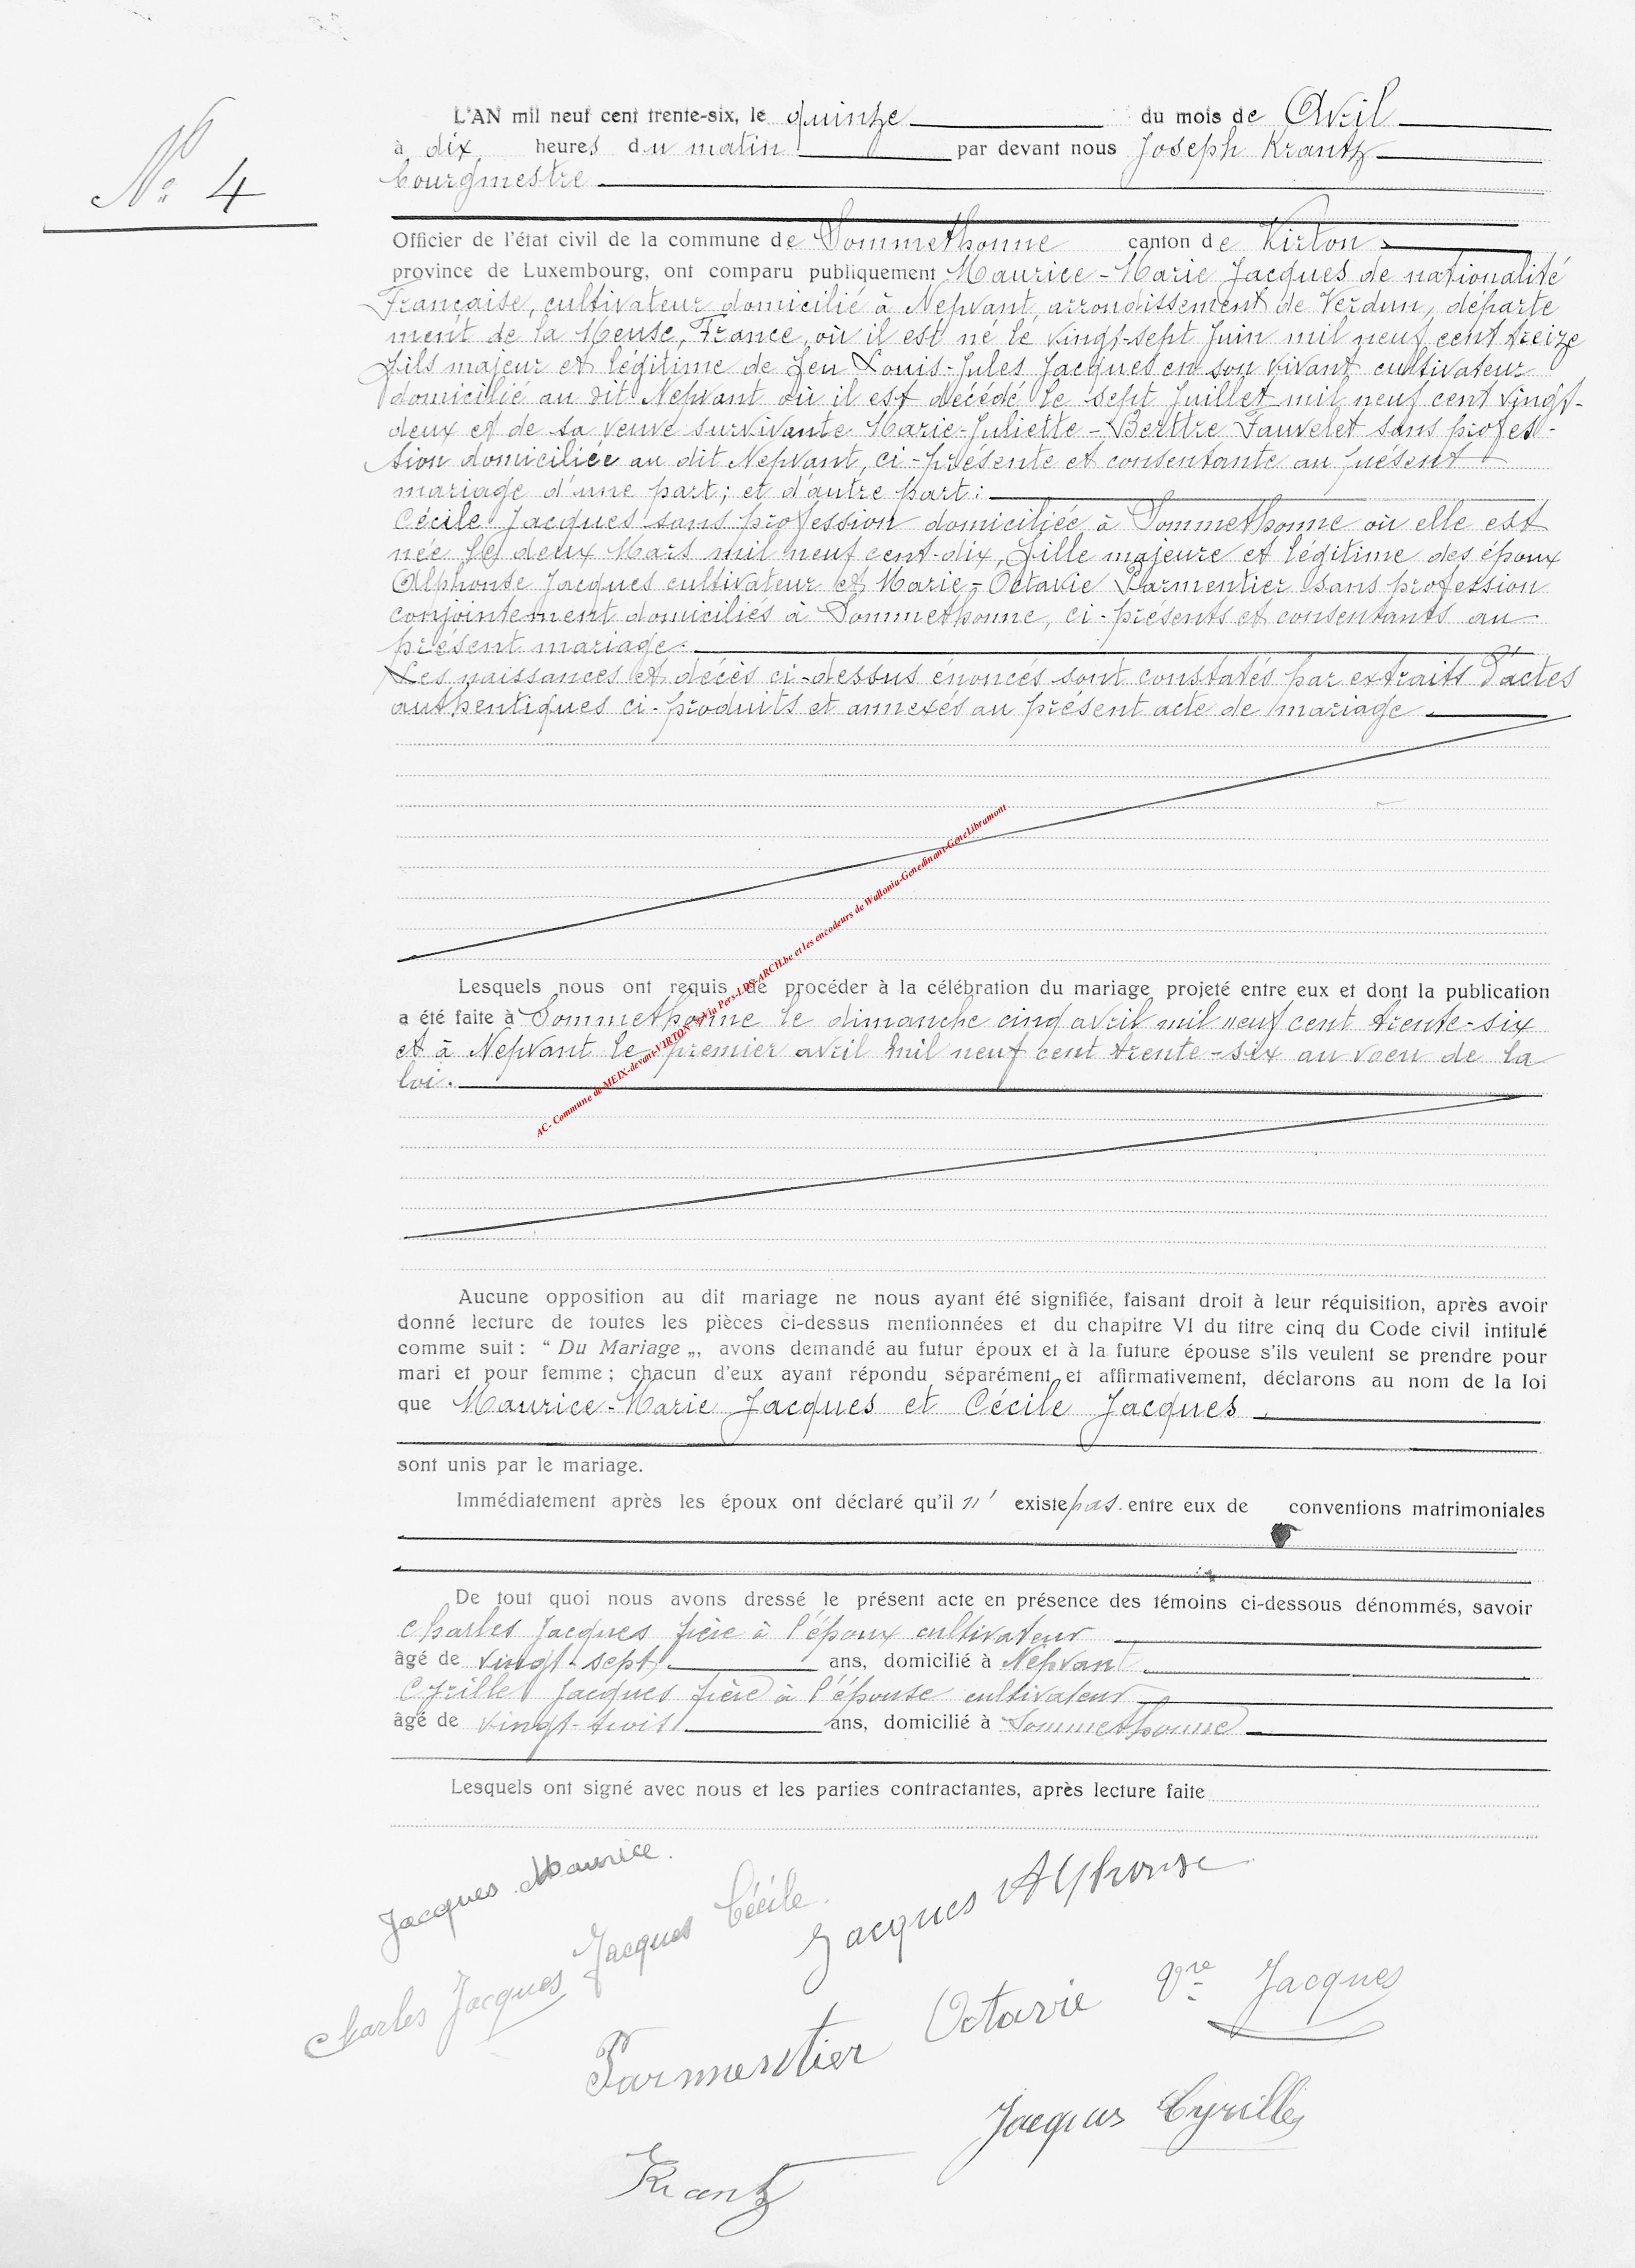 Nº 4
L'AN mil neuf cent trente-six, le quinze du mois de Avril
à dix heures du matin par devant nous Joseph Krantz
bourgmestre
Officier de l'état civil de la commune de Sommethonne canton de Virton
province de Luxembourg, ont comparu publiquement Maurice-Marie Jacques de nationalité
Française, cultivateur domicilié à Nepvant, arrondissement de Verdun, départe
ment de la Meuse, France, où il est né le vingt-sept Juin mil neuf cent treize
fils majeur et légitime de feu Louis-Jules Jacques en son vivant cultivateur
domicilié au dit Nepvant où il est décédé le sept Juillet mil neuf cent vingt-
deux et de sa veuve survivante Marie-Juliette-Berthe Fauvelet sans profes-
sion domiciliée au dit Nepvant, ci-présente et consentante au présent
mariage d'une part; et d'autre part:
Cécile Jacques sans profession domiciliée à Sommethonne où elle est
née le deux Mars mil neuf cent-dix, fille majeure et légitime des époux
Alphonse Jacques cultivateur et Marie-Octavie Parmentier sans profession
conjointement domiciliés à Sommethonne, ci-présents et consentants au
présent mariage.
Les naissances et décès ci-dessus énoncés sont constatés par extraits d'actes
authentiques ci-produits et annexés au présent acte de mariage.
Lesquels nous ont requis de procéder à la célébration du mariage projeté entre eux et dont la publication
a été faite à Sommethonne le dimanche cinq avril mil neuf cent trente-six
et à Nepvant le premier avril mil neuf cent trente-six au voeu de la
loi.
AC- Commune de MEIX-devant-VIRTON - Via Pers-LDS-ARCH.be et les encodeurs de Wallonia-Genedinant-GeneLibramont
Aucune opposition au dit mariage ne nous ayant été signifiée, faisant droit à leur réquisition, après avoir
donné lecture de toutes les pièces ci-dessus mentionnées et du chapitre VI du titre cinq du Code civil intitulé
comme suit : “ Du Mariage „, avons demandé au futur époux et à la future épouse s'ils veulent se prendre pour
mari et pour femme ; chacun d'eux ayant répondu séparément et affirmativement, déclarons au nom de la loi
que Maurice-Marie Jacques et Cécile Jacques
sont unis par le mariage.
Immédiatement après les époux ont déclaré qu'il n' existe pas entre eux de conventions matrimoniales
De tout quoi nous avons dressé le présent acte en présence des témoins ci-dessous dénommés, savoir
Charles Jacques frère à l'époux cultivateur
âgé de vingt-sept ans, domicilié à Nepvant
Cyrille Jacques frère à l'épouse cultivateur
âgé de vingt-trois ans, domicilié à Sommethonne
Lesquels ont signé avec nous et les parties contractantes, après lecture faite
Jacques Maurice.
Jacques Cécile.
Jacques Alphonse
Charles Jacques
Parmentier Octavie Vve Jacques
Jacques Cyrille
Krantz